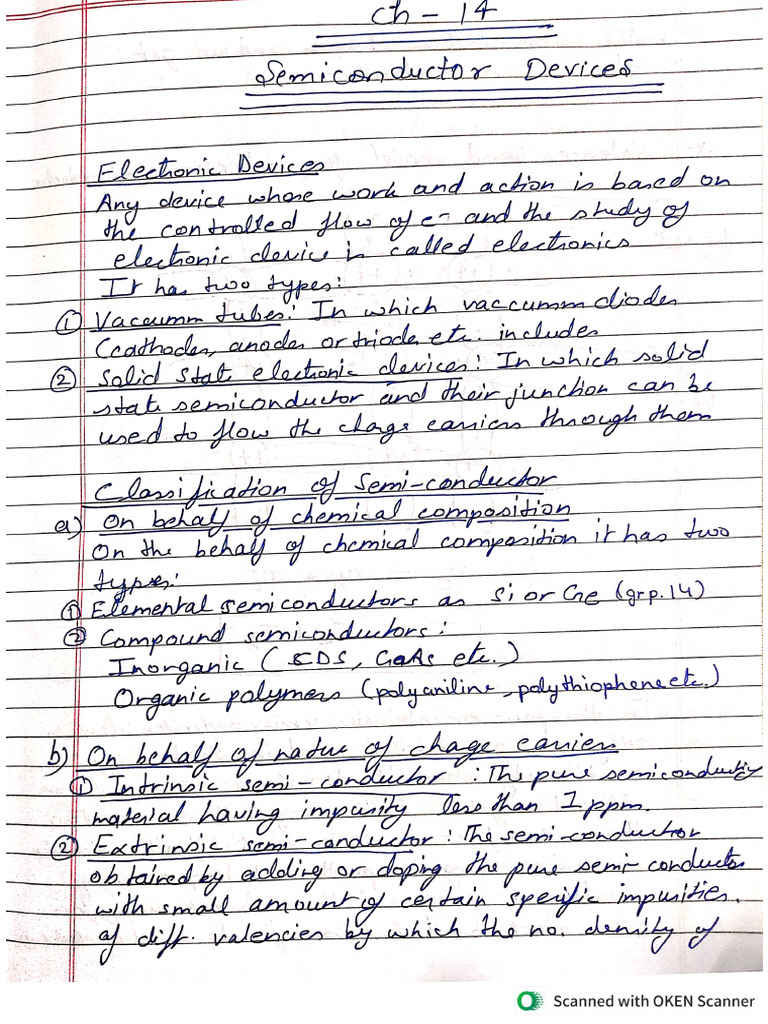 Ch - 14
Semiconductor Devices
Electronic Devices
Any device whose work and action is based on
the controlled flow of e- and the study of
electronic device is called electronics
It has two types:
① Vacaumm tubes: In which vaccumm diodes
(cathodes, anodes or triode, etc. includes
② Solid state electronic devices: In which solid
state semiconductor and their junction can be
used to flow the chage carriers through them
Classification of Semi-conductor
a) On behalf of chemical composition
On the behalf of chemical composition it has two
types:
① Elemental semiconductors as Si or Ge (grp.14)
② Compound semiconductors:
Inorganic (CDS, GaAs etc.)
Organic polymers (polyaniline, polythiophene etc.)
b) On behalf of natue of chage carriers
① Intrinsic semi-conductor : The pure semiconductiy
material having impurity less than 1 ppm.
② Extrinsic semi-conductor : The semi-conductor
obtained by adding or doping the pure semi-conductor
with small amount of certain specific impurities.
of diff. valencies by which the no. density of
Scanned with OKEN Scanner